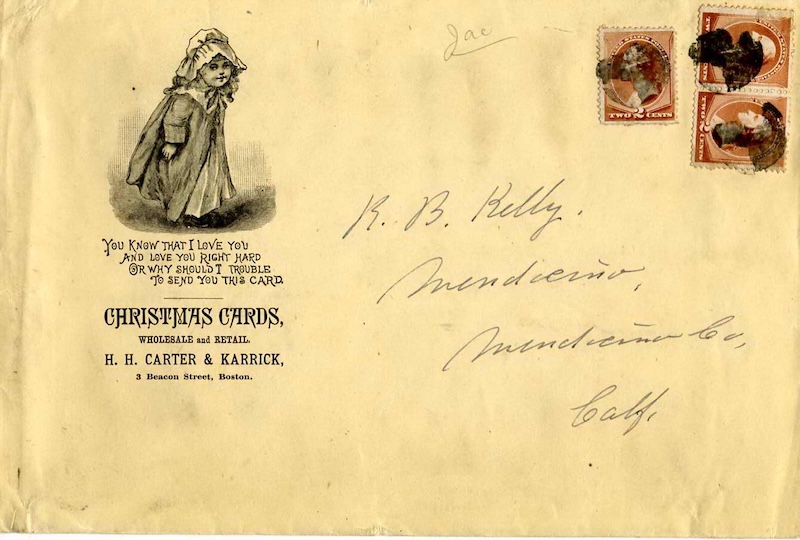 Jac
TWO 2 CENTS
YOU KNOW THAT I LOVE YOU
AND LOVE YOU RIGHT HARD
OR WHY SHOULD I TROUBLE
TO SEND YOU THIS CARD.
CHRISTMAS CARDS,
WHOLESALE and RETAIL.
H. H. CARTER & KARRICK,
3 Beacon Street, Boston.
R. B. Kelly.
Mendocino,
Mendocino Co,
Calf.